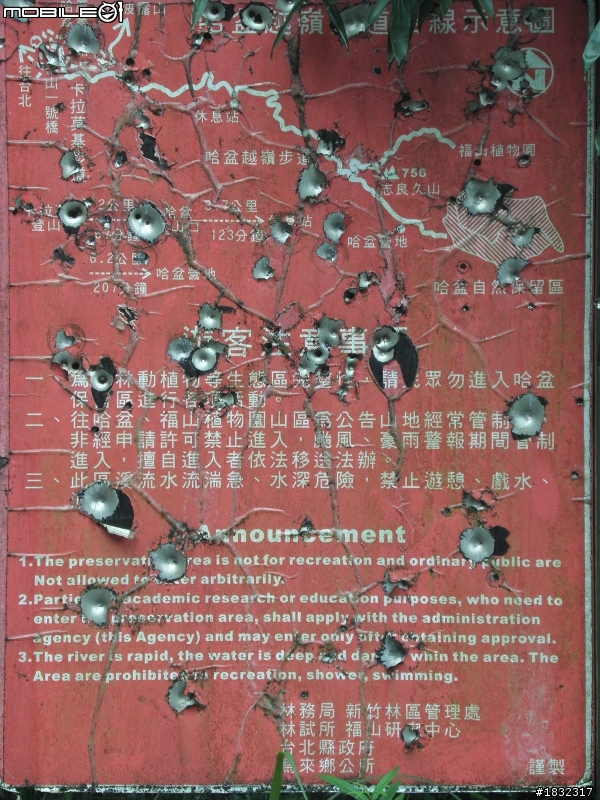 mobile01
哈盆越嶺 道 線示意圖
往台北
一號橋
卡拉
休息站
哈盆越嶺步道
福山植物園
756
志良久山
2公里
哈盆
7公里
登山
山口
123分鐘
哈盆營地
6.2公里
哈盆營地
207分鐘
哈盆自然保留區
客 意事
一、 林動植物等生態區完整性、請 眾勿進入哈盆
保 區進行各 活動。
二、往哈盆、福山植物園山區為公告山地經常管制
非經申請許可禁止進入，颱風、豪雨警報期間管制
進入，擅自進入者依法移送法辦。
三、此區溪流水流湍急、水深危險，禁止遊憩、戲水、
Announcement
1.The preservation area is not for recreation and ordinary public are
Not allowed to enter arbitrarily.
2. academic research or education purposes, who need to
enter the preservation area, shall apply with the administration
agency (this Agency) and may enter only after obtaining approval.
3.The river is rapid, the water is deep and whin the area. The
Area are prohibited recreation, shower, swimming.
林務局 新竹林區管理處
林試所 福山研究中心
台北縣政府
烏來鄉公所 謹製
#1832317